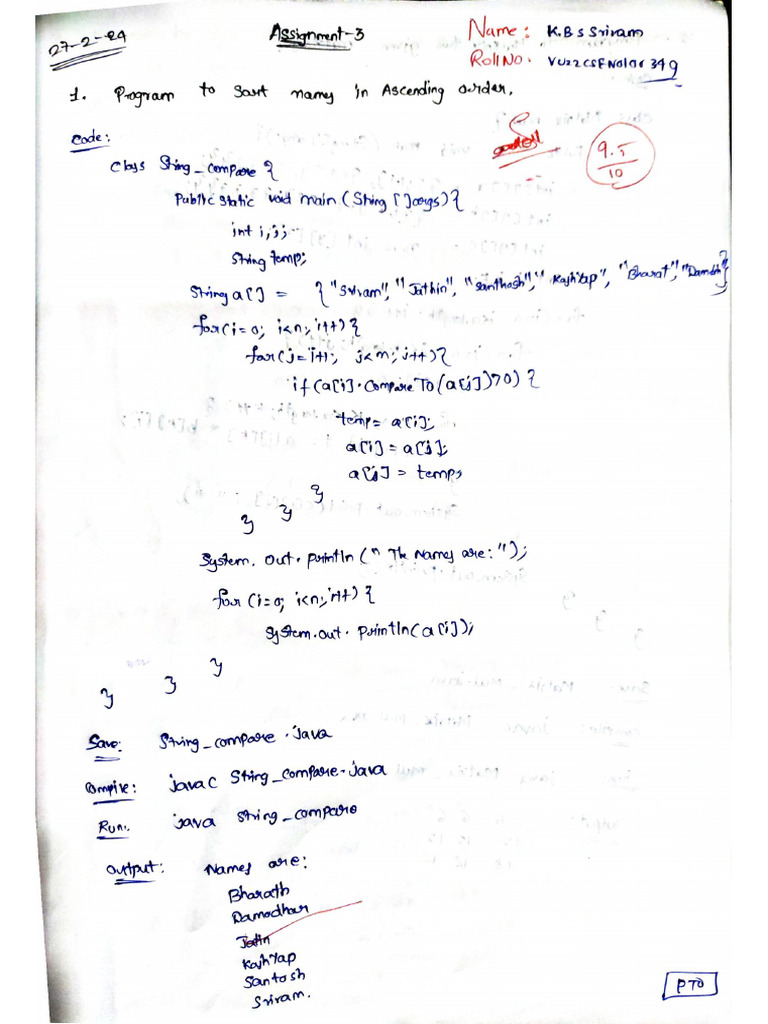 27-2-24
Assignment-3
Name: K.B.S Sriram
Roll No.
1. Program to Sort names in Ascending order.
Code:
9.5
10
Class String_compare {
Public static void main (String []args){
int i,j;
String temp;
String a[] = {"Sriram", "Jathin", "Santhosh", "Kashyap", "Bharat",
for(i=0; i<n; i++){
for(j=i+1; j<n; j++){
if(a[i].CompareTo(a[j])>0) {
temp= a[i];
a[i] = a[j];
a[j] = temp;
}
} }
System.out.println("The Names are:");
for (i=0; i<n; i++) {
System.out.println(a[i]);
}
} }
Save: String_compare.java
Compile: javac String_compare.java
Run: java String_compare
Output: Names are:
Bharath
Damodhar
Kashyap
Santosh
Sriram.
PTO